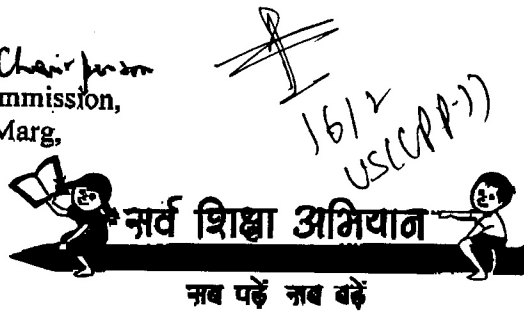 Chairperson
mmission,
Marg,
16/2
US(CPP-I)
सर्व शिक्षा अभियान
सब पढ़ें सब बढ़ें